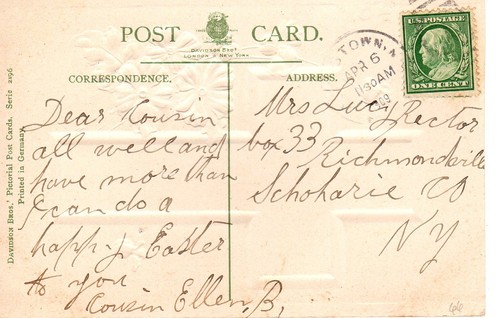 POST CARD.
DAVIDSON BROS.
LONDON & NEW YORK
CORRESPONDENCE.
ADDRESS.
TOWN, N
APR 6
1130AM
U.S. POSTAGE
ONE CENT
Dear Cousin
all well and
have more than
I can do a
happy Easter
to you
Cousin Ellen, B,
Mrs Lucy Rector
box 33
Richmondville
Schoharie CO
NY
DAVIDSON BROS.' Pictorial Post Cards. Serie 2196
Printed in Germany.